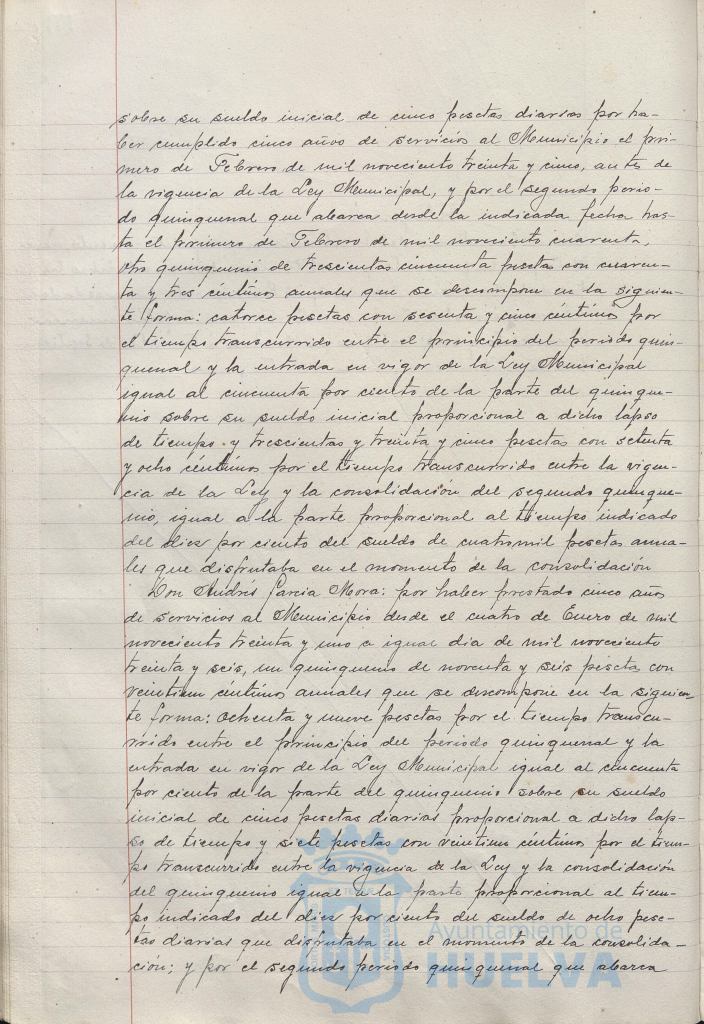 sobre su sueldo inicial de cinco pesetas diarias por ha-
ber cumplido cinco años de servicios al Municipio el pri-
mero de Febrero de mil noveciento treinta y cinco, antes de
la vigencia de la Ley Municipal, y por el segundo perio-
do quinquenal que abarca desde la indicada fecha has-
ta el primero de Febrero de mil noveciento cuarenta,
otro quinquenio de trescientas cincuenta pesetas con cuaren-
ta y tres céntimos anuales que se descompone en la siguien-
te forma: catorce pesetas con sesenta y cinco céntimos por
el tiempo transcurrido entre el principio del periodo quin-
quenal y la entrada en vigor de la Ley Municipal
igual al cincuenta por ciento de la parte del quinque-
nio sobre su sueldo inicial proporcional a dicho lapso
de tiempo y trescientas y treinta y cinco pesetas con setenta
y ocho céntimos por el tiempo transcurrido entre la vigen-
cia de la Ley y la consolidación del segundo quinque-
nio, igual a la parte proporcional al tiempo indicado
del diez por ciento del sueldo de cuatromil pesetas anua-
les que disfrutaba en el momento de la consolidación
Don Andrés Garcia Mora: por haber prestado cinco años
de servicios al Municipio desde el cuatro de Enero de mil
noveciento treinta y uno a igual dia de mil noveciento
treinta y seis, un quinquenio de noventa y seis peseta con
veintiun céntimos anuales que se descompone en la siguien-
te forma: ochenta y nueve pesetas por el tiempo transcu-
rrido entre el principio del periodo quinquenal y la
entrada en vigor de la Ley Municipal igual al cincuenta
por ciento de la parte del quinquenio sobre su sueldo
inicial de cinco pesetas diarias proporcional a dicho lap-
so de tiempo y siete pesetas con veintiun céntimos por el tiem-
po transcurrido entre la vigencia de la Ley y la consolidación
del quinquenio igual a la parte proporcional al tiem-
po indicado del diez por ciento del sueldo de ocho pese-
tas diarias que disfrutaba en el momento de la consolida-
ción; y por el segundo periodo quinquenal que abarca
Ayuntamiento de
HUELVA